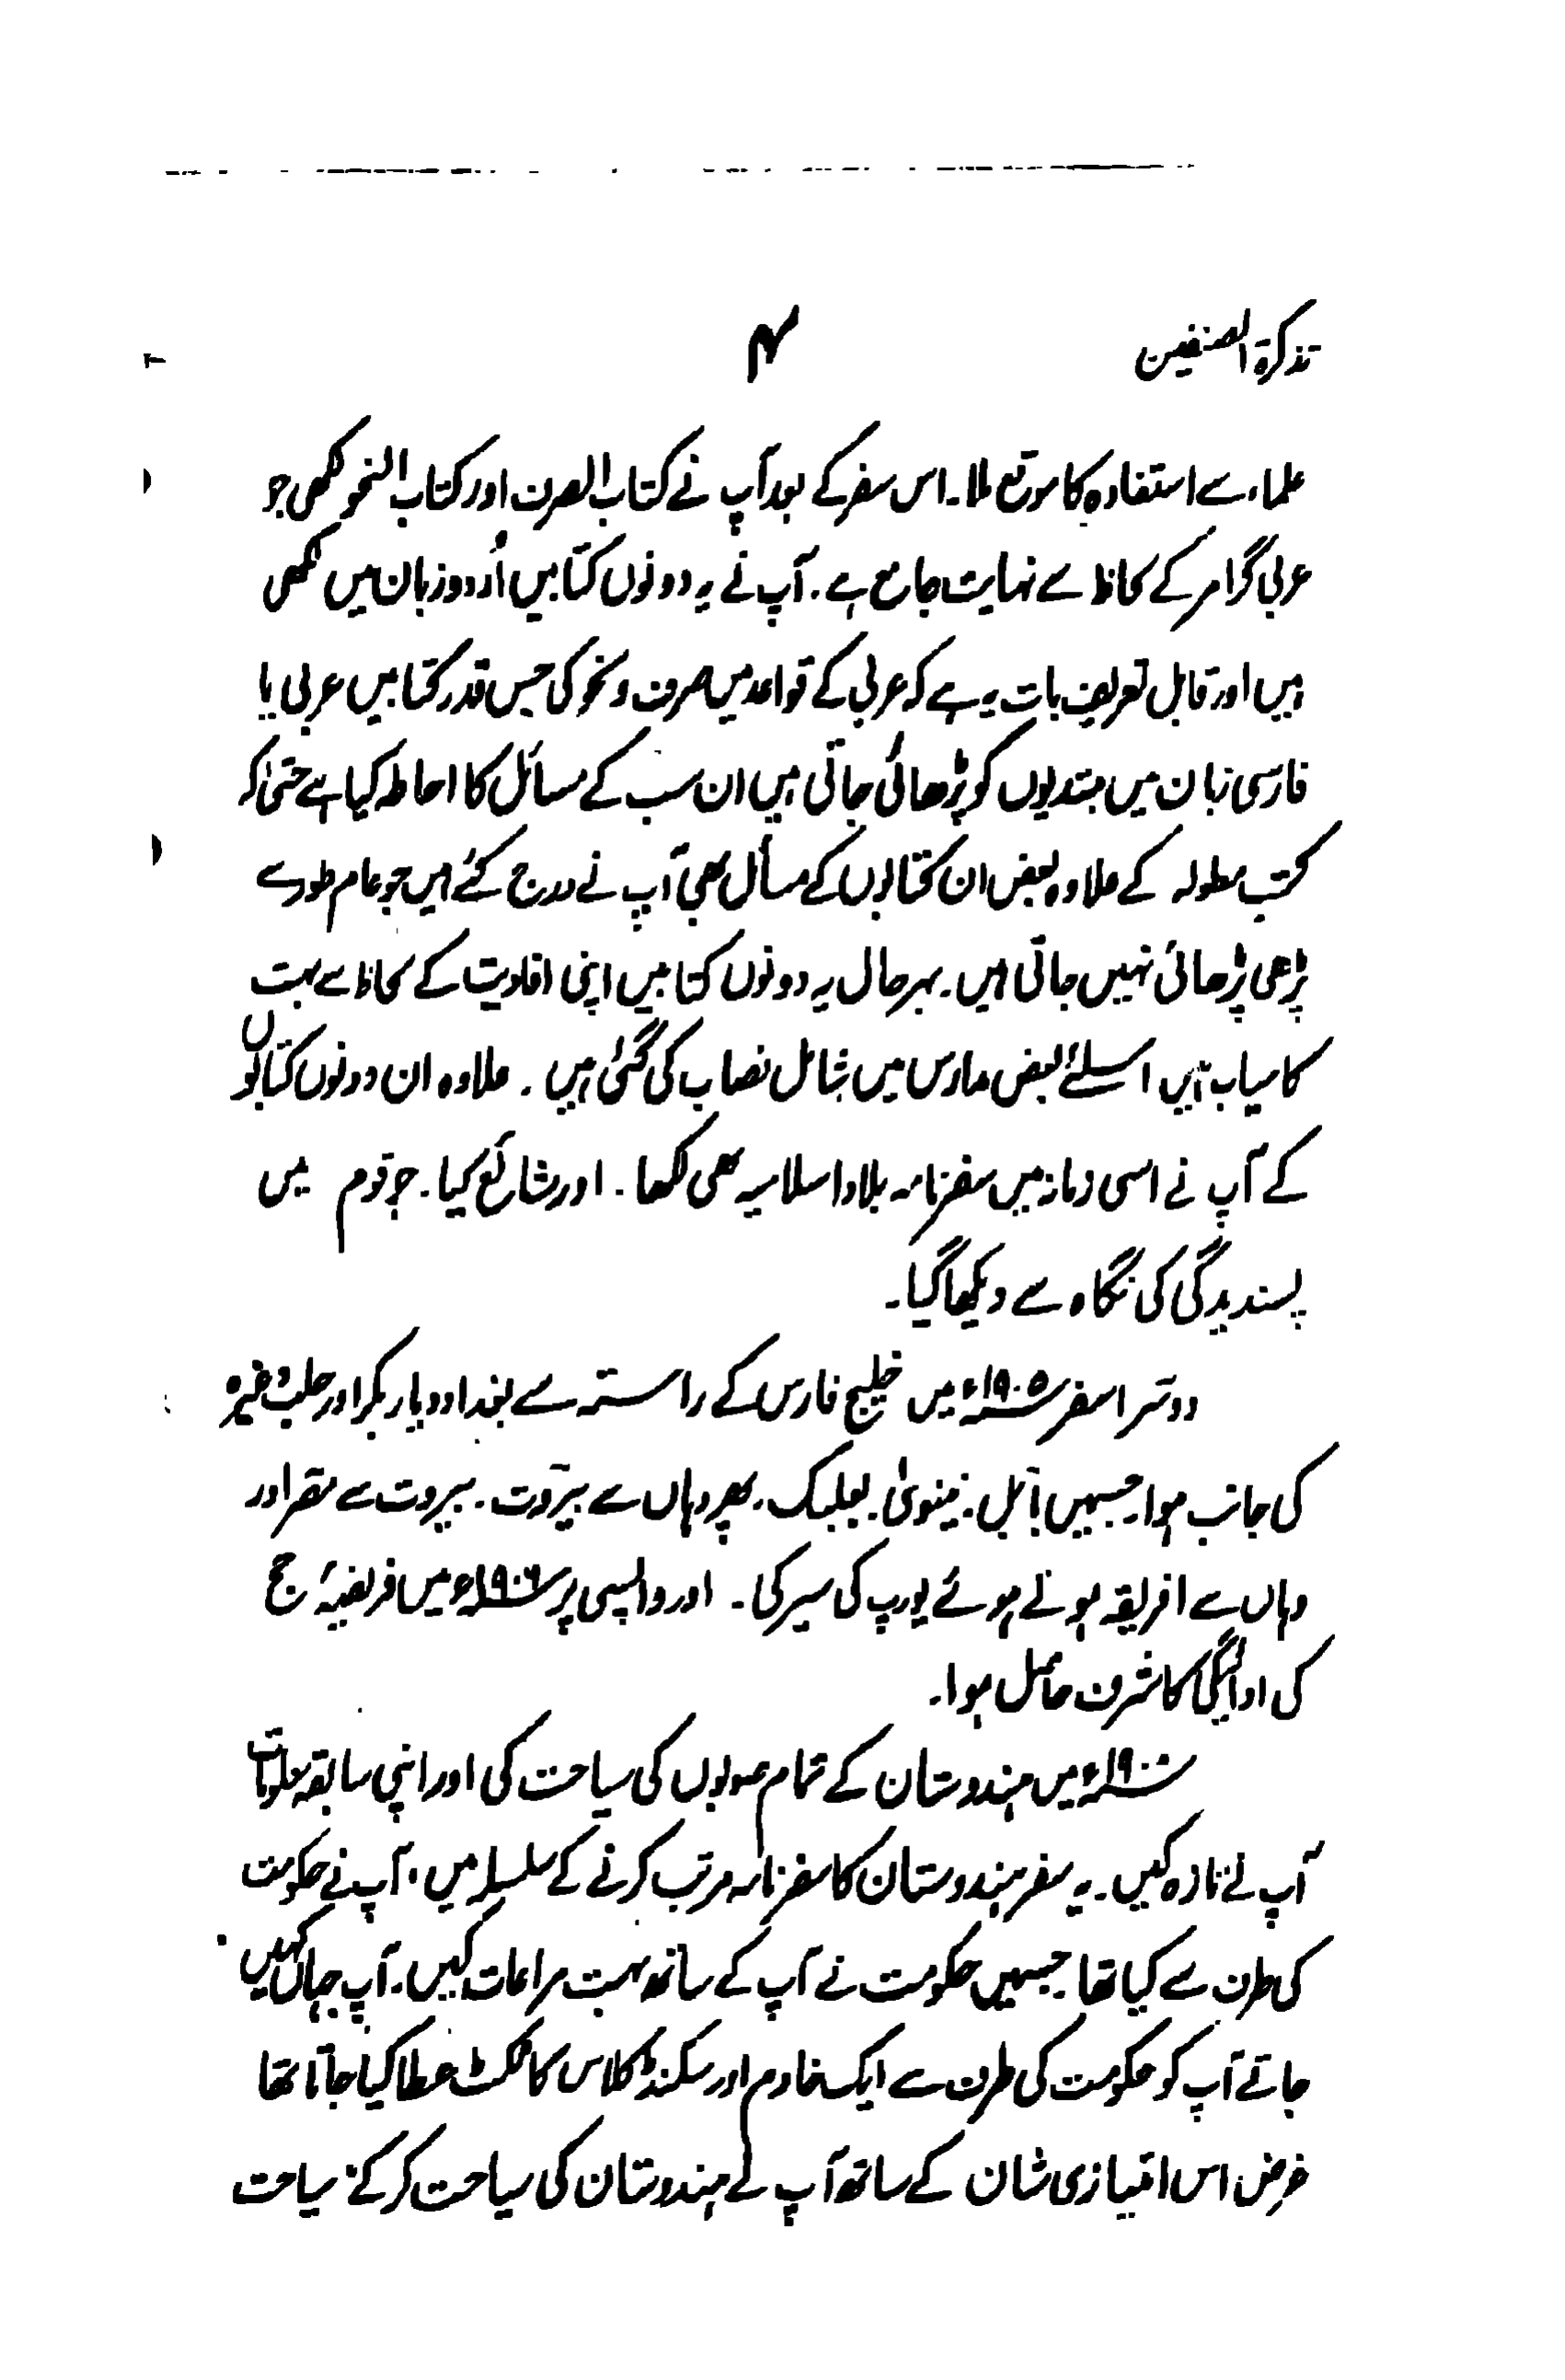 تذکرۃ المصنفین
۴
علماء سے استفادہ کا موقع ملا۔ اس سفر کے بعد آپ نے کتاب الصرف اور کتاب النحو لکھی جو
عربی گرامر کے لحاظ سے نہایت جامع ہے۔ آپ نے یہ دونوں کتابیں اُردو زبان میں لکھی
ہیں اور قابل تعریف بات یہ ہے کہ عربی کے قواعد میں صرف و نحو کی جس قدر کتابیں عربی یا
فارسی زبان میں مبتدیوں کو پڑھائی جاتی ہیں ان سب کے مسائل کا احاطہ کیا ہے حتیٰ کہ
کتب مطولہ کے علاوہ بعض ان کتابوں کے مسائل بھی آپ نے درج کئے ہیں جو عام طور سے
پڑھی پڑھائی نہیں جاتی ہیں۔ بہر حال یہ دونوں کتابیں اپنی افادیت کے لحاظ سے بہت
کامیاب ہیں اسلئے بعض مدارس میں شامل نصاب کی گئی ہیں۔ علاوہ ان دونوں کتابوں
کے آپ نے اسی زمانہ میں سفرنامہ بلاد اسلامیہ بھی لکھا۔ اور شائع کیا۔ جو قوم میں
پسندیدگی کی نگاہ سے دیکھا گیا۔
دوسرا سفر ۱۹۰۵ء میں خلیج فارس کے راستہ سے بغداد دیار بکر اور حلب وغیرہ
کی جانب ہوا۔ جسمیں بابل۔ نینویٰ۔ بعلبک۔ پھر وہاں سے بیروت۔ بیروت سے مصر اور
وہاں سے افریقہ ہوتے ہوئے یورپ کی سیر کی۔ اور واپسی پر ۱۹۰۶ء میں فریضۂ حج
کی ادائیگی کا شرف حاصل ہوا۔
میں ہندوستان کے تمام صوبوں کی سیاحت کی اور اپنی سابقہ معلومات
آپ نے تازہ کیں۔ یہ سفر ہندوستان کا سفرنامہ مرتب کرنے کے سلسلہ میں، آپ نے حکومت
کی طرف سے کیا تھا۔ جسمیں حکومت نے آپ کے ساتھ بہت مراعات کیں۔ آپ جہاں کہیں
جاتے آپ کو حکومت کی طرف سے ایک خادم اور سکنڈ کلاس کا ٹکٹ عطا کیا جاتا تھا
غرض اس امتیازی شان کے ساتھ آپ نے ہندوستان کی سیاحت کر کے سیاحت